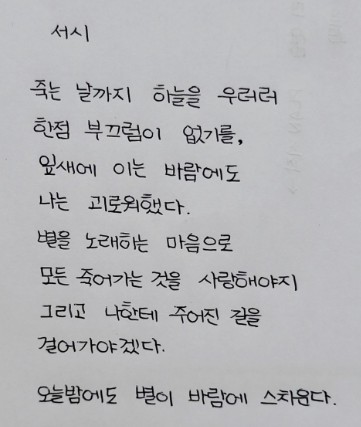 서시
죽는 날까지 하늘을 우러러
한점 부끄럼이 없기를,
잎새에 이는 바람에도
나는 괴로워했다.
별을 노래하는 마음으로
모든 죽어가는 것을 사랑해야지
그리고 나한테 주어진 길을
걸어가야겠다.
오늘밤에도 별이 바람에 스치운다.